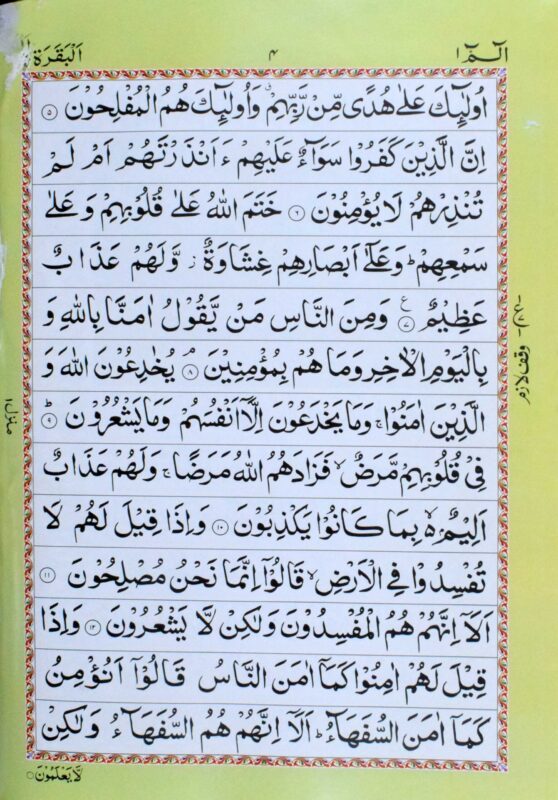 الٓمّٓ ۱ ۴ اَلْبَقَرَة ۲
اُولٰٓئِكَ عَلٰى هُدًى مِّنْ رَّبِّهِمْ ۗ وَاُولٰٓئِكَ هُمُ الْمُفْلِحُوْنَ ۵
اِنَّ الَّذِيْنَ كَفَرُوْا سَوَآءٌ عَلَيْهِمْ ءَاَنْذَرْتَهُمْ اَمْ لَمْ
تُنْذِرْهُمْ لَا يُؤْمِنُوْنَ ۶ خَتَمَ اللّٰهُ عَلٰى قُلُوْبِهِمْ وَعَلٰى
سَمْعِهِمْ ؕ وَعَلٰٓى اَبْصَارِهِمْ غِشَاوَةٌ ز وَّلَهُمْ عَذَابٌ
عَظِيْمٌ ۷ ع وَمِنَ النَّاسِ مَنْ يَّقُوْلُ اٰمَنَّا بِاللّٰهِ وَ
بِالْيَوْمِ الْاٰخِرِ وَمَا هُمْ بِمُؤْمِنِيْنَ ۘ ۸ يُخٰدِعُوْنَ اللّٰهَ وَ
الَّذِيْنَ اٰمَنُوْا ۚ وَمَا يَخْدَعُوْنَ اِلَّآ اَنْفُسَهُمْ وَمَا يَشْعُرُوْنَ ؕ ۹
فِيْ قُلُوْبِهِمْ مَّرَضٌ ۙ فَزَادَهُمُ اللّٰهُ مَرَضًا ۚ وَلَهُمْ عَذَابٌ
اَلِيْمٌۢ ۙ بِمَا كَانُوْا يَكْذِبُوْنَ ۱۰ وَاِذَا قِيْلَ لَهُمْ لَا
تُفْسِدُوْا فِي الْاَرْضِ ۙ قَالُوْٓا اِنَّمَا نَحْنُ مُصْلِحُوْنَ ۱۱
اَلَآ اِنَّهُمْ هُمُ الْمُفْسِدُوْنَ وَلٰكِنْ لَّا يَشْعُرُوْنَ ۱۲ وَاِذَا
قِيْلَ لَهُمْ اٰمِنُوْا كَمَآ اٰمَنَ النَّاسُ قَالُوْٓا اَنُؤْمِنُ
كَمَآ اٰمَنَ السُّفَهَآءُ ؕ اَلَآ اِنَّهُمْ هُمُ السُّفَهَآءُ وَلٰكِنْ
لَّا يَعْلَمُوْنَ
وقف لازم
منزل ۱